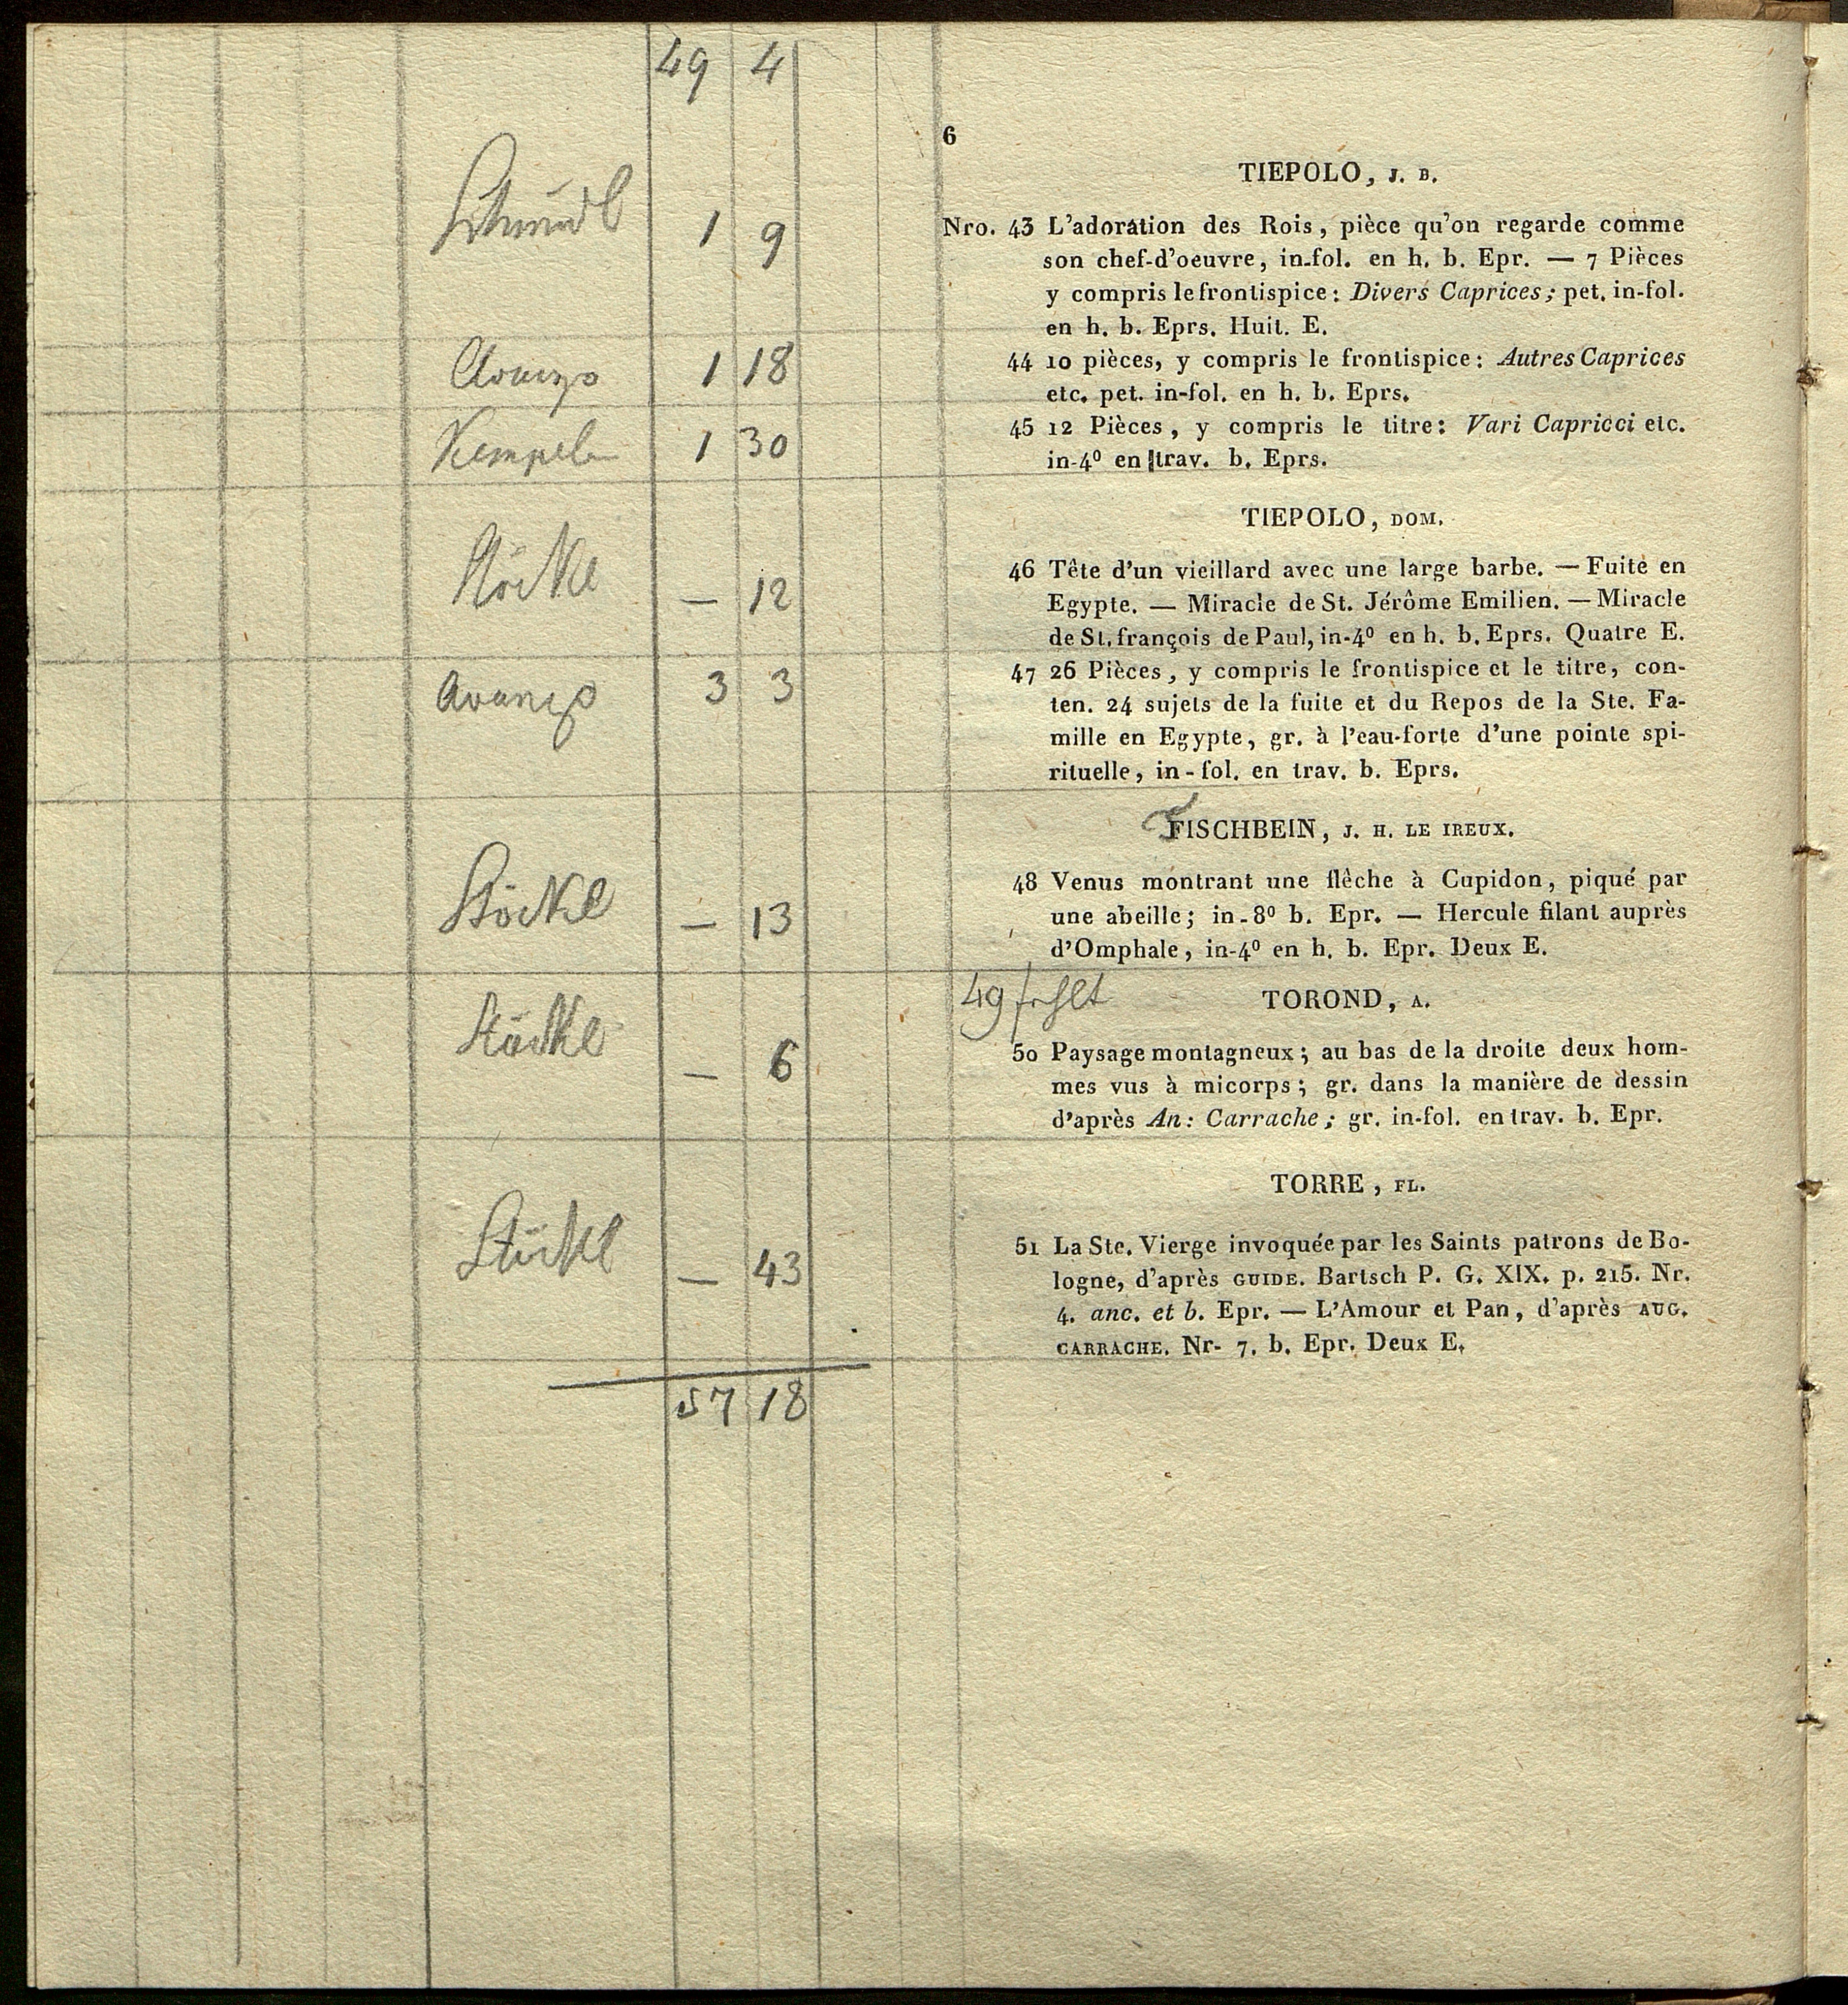 49 4
6
TIEPOLO, J. B.
Schmidl 1 9
Nro. 43 L'adoration des Rois, pièce qu'on regarde comme
son chef-d'oeuvre, in-fol. en h. b. Epr. — 7 Pièces
y compris le frontispice: Divers Caprices; pet. in-fol.
en h. b. Eprs. Huit. E.
Avanzo 1 18
44 10 pièces, y compris le frontispice: Autres Caprices
etc. pet. in-fol. en h. b. Eprs.
Kempeln 1 30
45 12 Pièces, y compris le titre: Vari Capricci etc.
in-4º en trav. b. Eprs.
TIEPOLO, DOM.
Stöckl — 12
46 Tête d'un vieillard avec une large barbe. — Fuite en
Egypte. — Miracle de St. Jérôme Emilien. — Miracle
de St. françois de Paul, in-4º en h. b. Eprs. Quatre E.
Avanzo 3 3
47 26 Pièces, y compris le frontispice et le titre, con-
ten. 24 sujets de la fuite et du Repos de la Ste. Fa-
mille en Egypte, gr. à l'eau-forte d'une pointe spi-
rituelle, in-fol. en trav. b. Eprs.
FISCHBEIN, J. H. LE IREUX.
Stöckl — 13
48 Venus montrant une flêche à Cupidon, piqué par
une abeille; in-8º b. Epr. — Hercule filant auprès
d'Omphale, in-4º en h. b. Epr. Deux E.
49 fehlt
TOROND, A.
Stöckl — 6
50 Paysage montagneux; au bas de la droite deux hom-
mes vus à micorps; gr. dans la manière de dessin
d'après An: Carrache; gr. in-fol. en trav. b. Epr.
TORRE, FL.
Stöckl — 43
51 La Ste. Vierge invoquée par les Saints patrons de Bo-
logne, d'après GUIDE. Bartsch P. G. XIX. p. 215. Nr.
4. anc. et b. Epr. — L'Amour et Pan, d'après AUG.
CARRACHE. Nr- 7. b. Epr. Deux E.
57 18